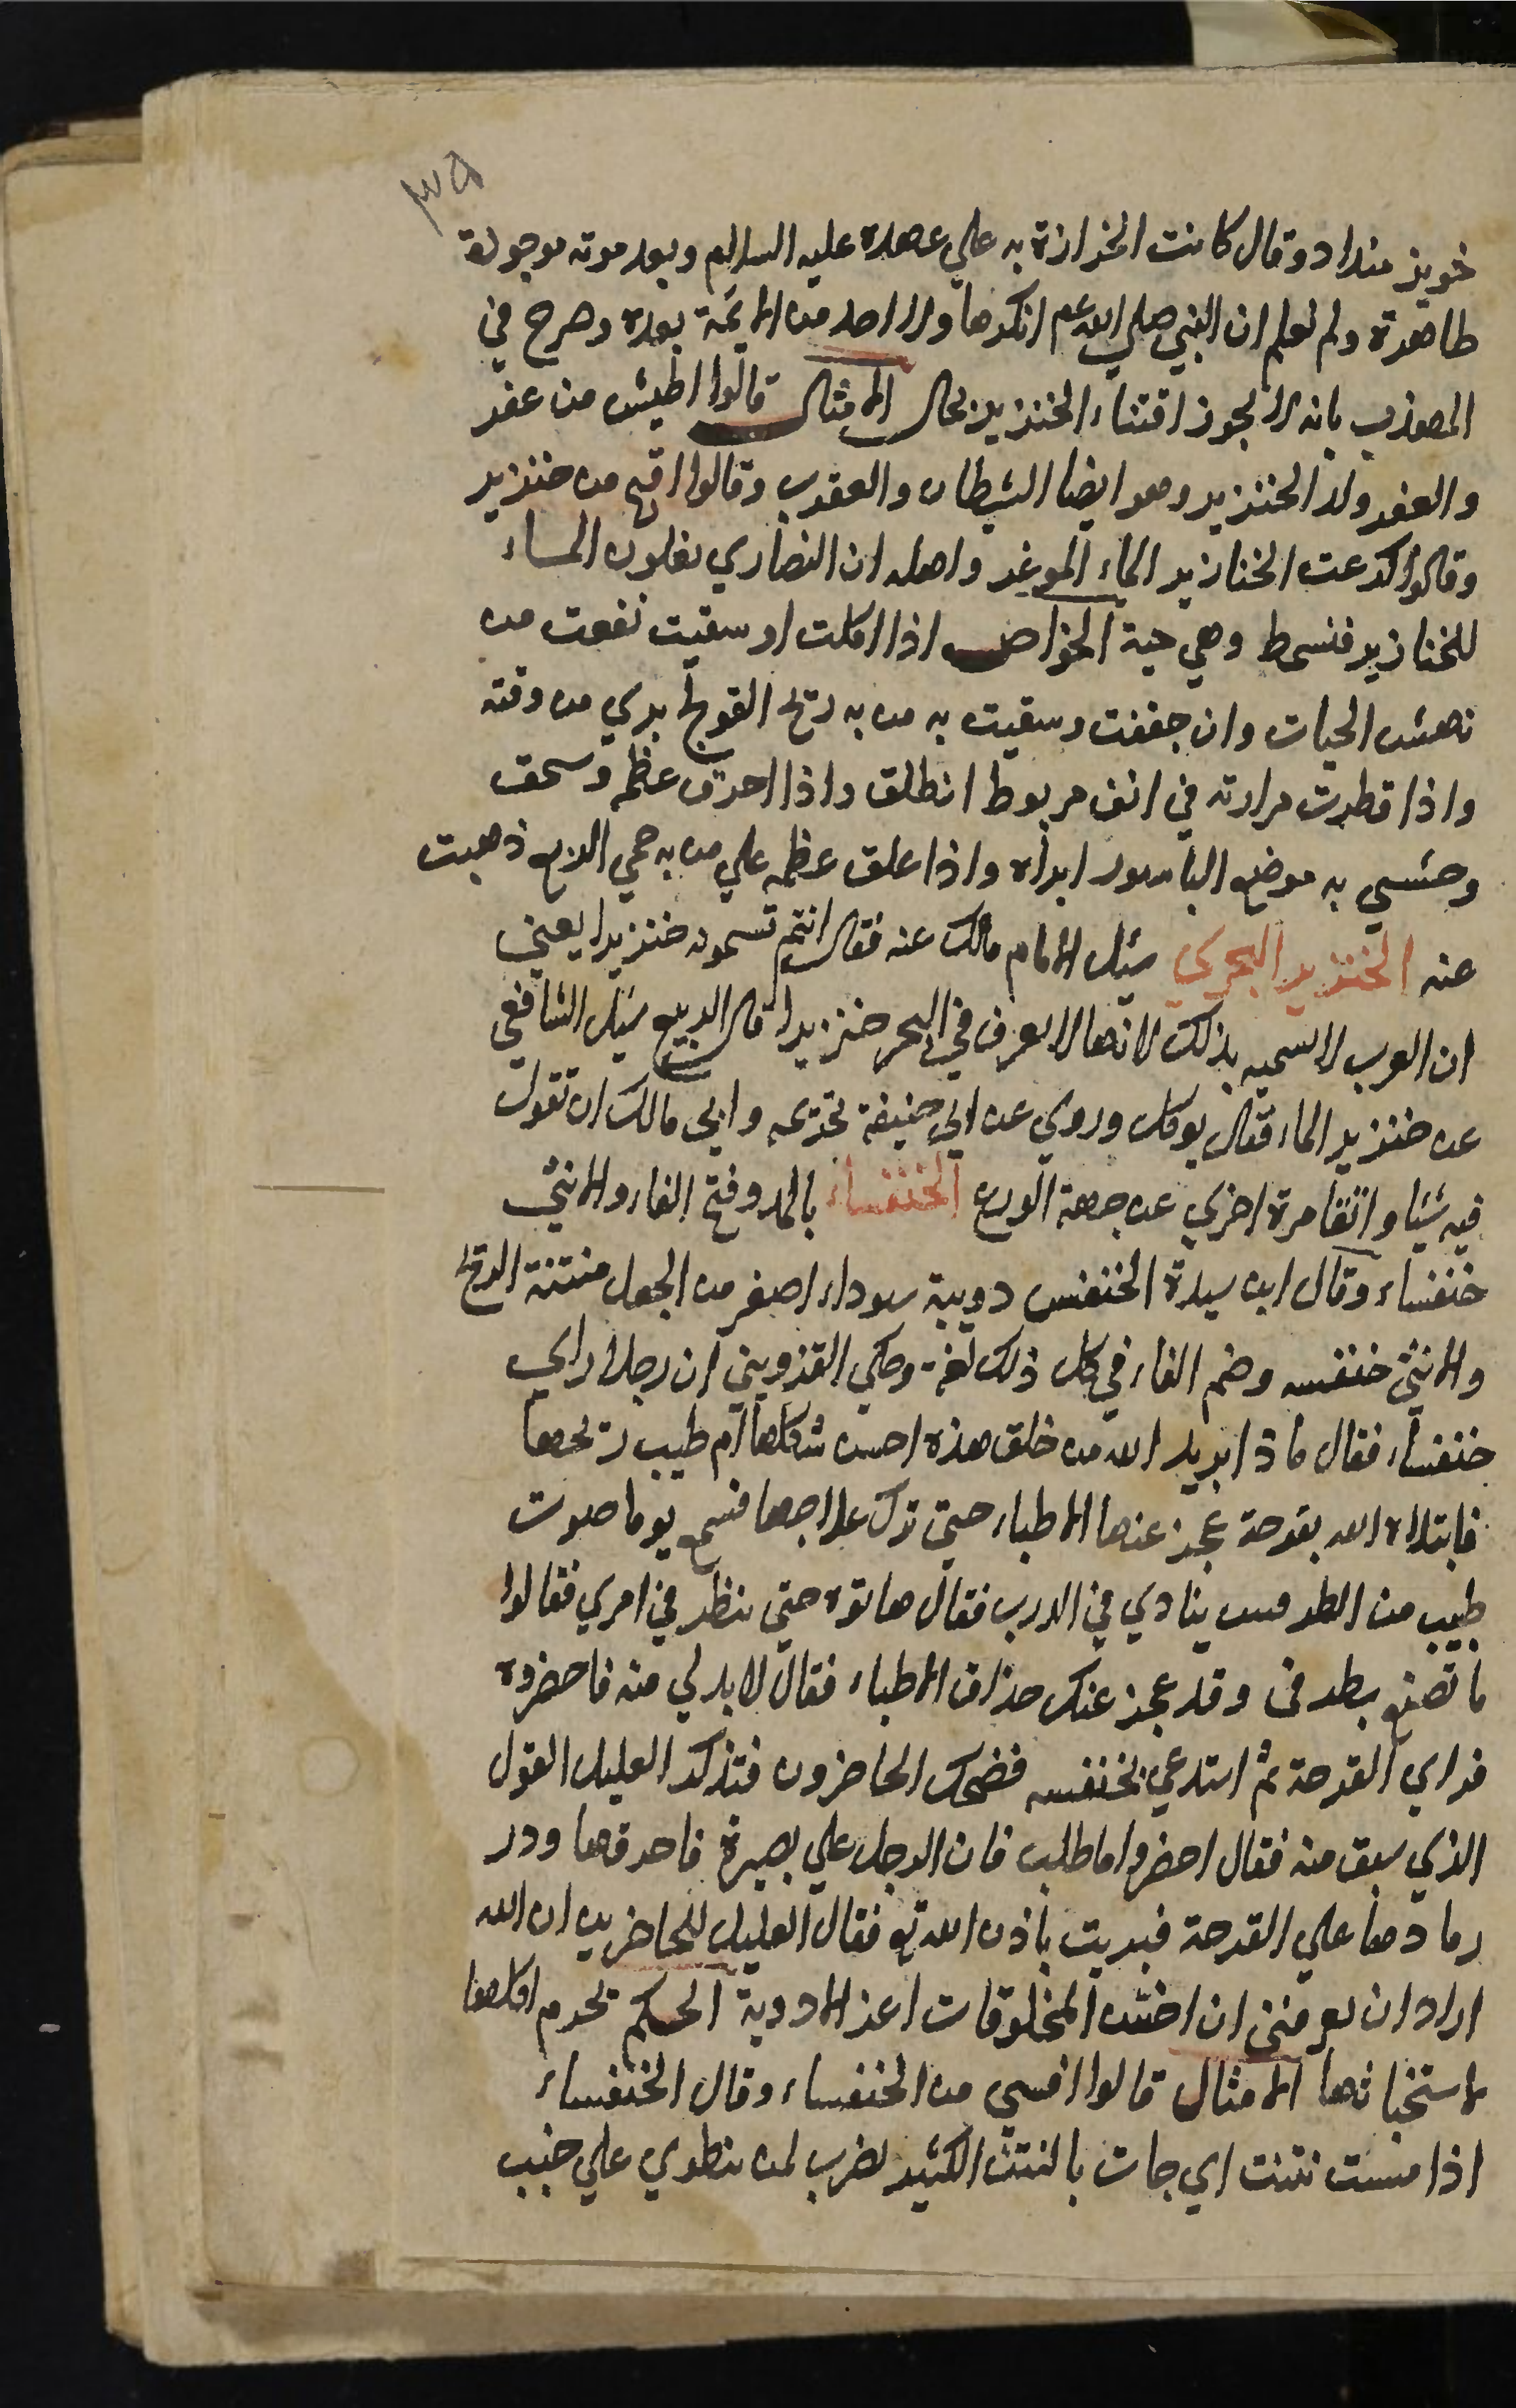 ٣٥
خويز منداد وقال كانت الخرازة به علي عهده عليه السلام وبعد موته موجودة
ظاهرة ولم نعلم ان النبي صلي الله عم انكرها ولا احد من الائمة بعده وصرح في
المهذب بانه لا يجوز اقتناء الخنزير بحال الامثال قالوا اطيش من عفر
والعفر ولد الخنزير وهو ايضا الشيطان والعقرب وقالوا اقبح من خنزير
وقالوا كرهت الخنازير الماء الموغر واصله ان النصاري تغلون الماء
للخنازير فتسمط وهي حية الخواص اذا اكلت او سقيت نفعت من
نهش الحيات وان جففت وسقيت به من به ريح القولنج بري من وقته
واذا قطرت مرارته في انف مربوط انطلق واذا احرق عظمه وسحق
وحشي به موضع الباسور ابراه واذا علق عظمه علي من به حمي الربع ذهبت
عنه الخنزير البحري سيل الامام مالك عنه فقال انتم تسمونه خنزيرا يعني
ان العرب لا تسميه بذلك لانها لا تعرف في البحر خنزيرا قال الربيع سيل الشافعي
عن خنزير الماء فقال يوكل وروي عن ابي حنيفة تحريمه وابي مالك ان تقول
فيه شيئا واتقا مرة اخري عن جهة الورع الخنفساء بالمد وفتح الفاء والانثي
خنفساء وقال ابن سيدة الخنفس دويبة سوداء اصغر من الجعل منتنة الريح
والانثي خنفسه وضم الفاء في كل ذلك لغة وحكي القزويني ان رجلا راي
خنفساء فقال ماذا يريد الله من خلق هذه احسن شكلها ام طيب ريحها
فابتلاه الله بقرحة عجز عنها الاطباء حتي ترك علاجها فسمع يوما صوت
طبيب من الطرقيين ينادي في الدرب فقال هاتوه حتي ينظر في امري فقالوا
ما تصنع بطرقي وقد عجز عنك حذاق الاطباء فقال لا بد لي منه فاحضروه
فراي القرحة ثم استدعي بخنفسه فضحك الحاضرون فتذكر العليل القول
الذي سبق منه فقال احضروا ما طلب فان الرجل علي بصيرة فاحرقها وذر
رمادها علي القرحة فبريت باذن الله تع فقال العليل للحاضرين ان الله
اراد ان يعرفني ان اخس المخلوقات اعز الادوية الحكم تحرم اكلها
لاستخباثها الامثال قالوا افسي من الخنفساء وقال الخنفساء
اذا مست نتنت اي جات بالنتن الكثير يضرب لمن ينطوي علي خبث